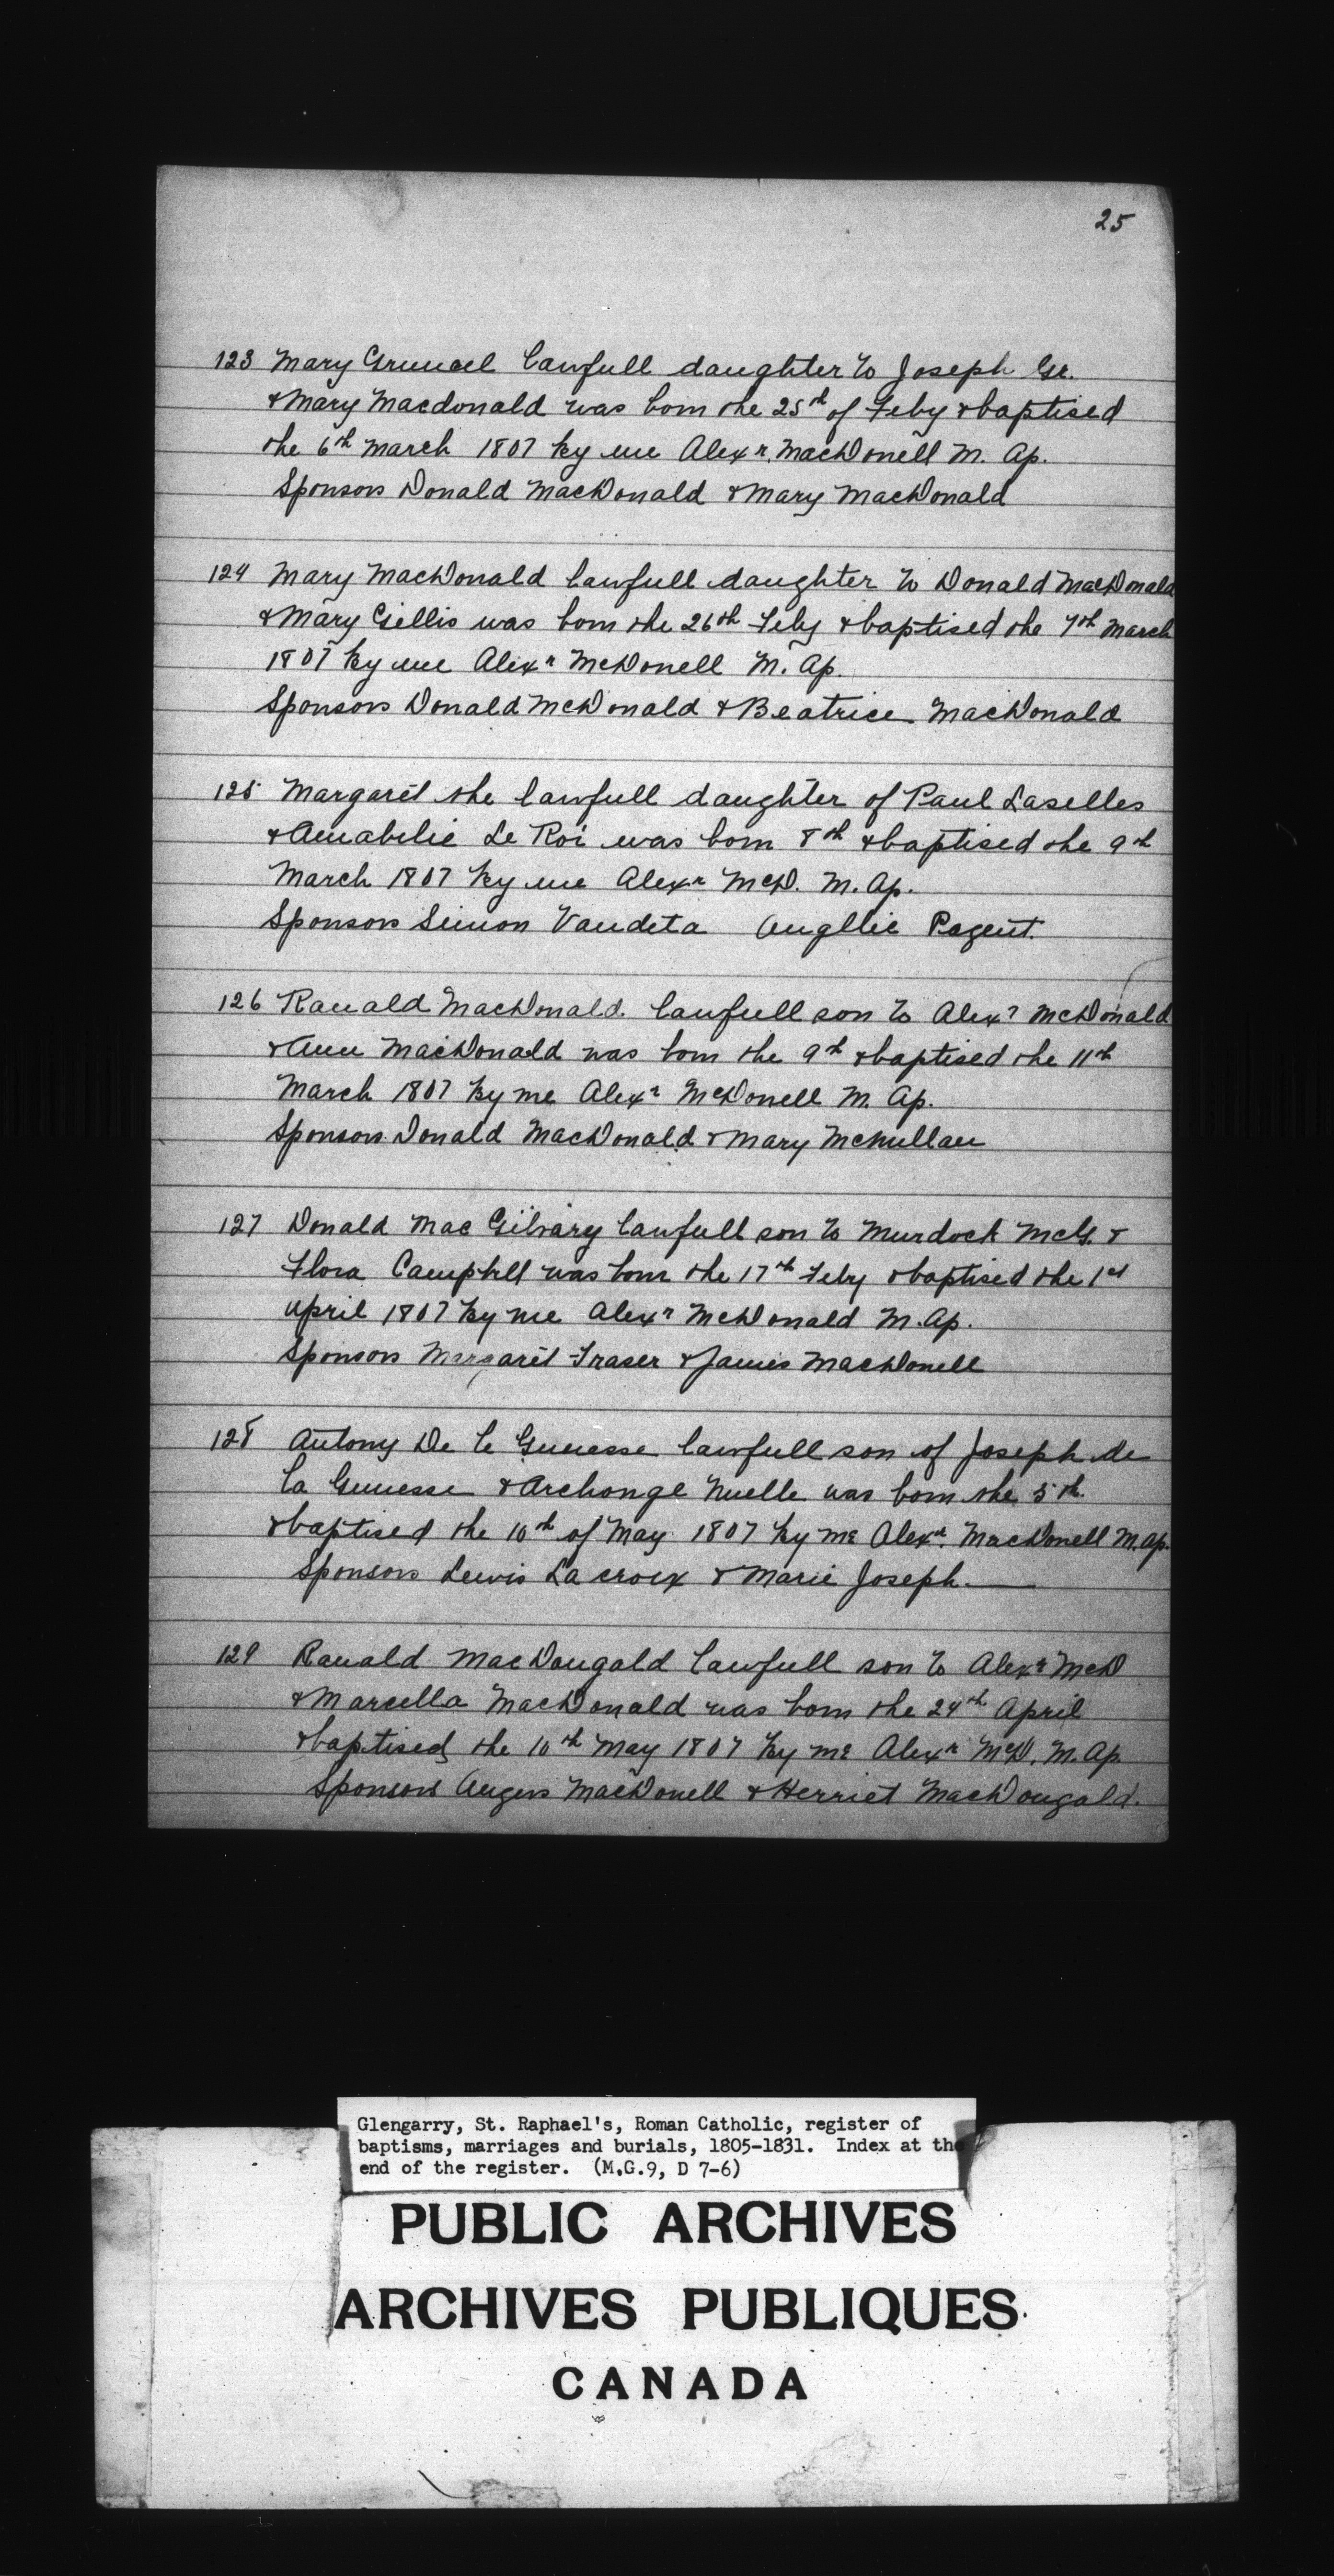 25
123 Mary Gruneel lawfull daughter to Joseph Gr.
& Mary Macdonald was born the 25th of Feby & baptised
the 6th March 1807 by me Alexr. MacDonell M. Ap.
Sponsors Donald MacDonald & Mary MacDonald
124 Mary MacDonald lawfull daughter to Donald MacDonald
& Mary Gillis was born the 26th Feby & baptised the 7th March
1807 by me Alexr McDonell M. Ap.
Sponsors Donald McDonald & Beatrice MacDonald
125 Margaret the lawfull daughter of Paul Laselles
& Amabilie Le Roi was born 8th & baptised the 9th
March 1807 by me Alexr McD. M. Ap.
Sponsors Simon Vandeta Angllie Pagent.
126 Ranald MacDonald. lawfull son to Alexr McDonald
& Ann MacDonald was born the 9th & baptised the 11th
March 1807 by me Alexr McDonell M. Ap.
Sponsors Donald MacDonald & Mary McMullan
127 Donald Mac Gilvary lawfull son to Murdock McG. &
Flora Campbll was born the 17th Feby & baptised the 1st
April 1807 by me Alexr McDonald M. Ap.
Sponsors Margaret Fraser & James MacDonell
128 Antony De le Gunesse lawfull son of Joseph de
la Gunesse & Archonge Nuelle was born the 5th
& baptised the 10th of May 1807 by me Alexr. MacDonell M. Ap.
Sponsors Lewis La croix & Marie Joseph.
129 Ranald MacDougald lawfull son to Alexr McD
& Marcella MacDonald was born the 24th April
& baptised the 10th May 1807 by me Alexr McD. M. Ap.
Sponsors Angus MacDonell & Herriet MacDougald.
Glengarry, St. Raphael's, Roman Catholic, register of
baptisms, marriages and burials, 1805-1831. Index at the
end of the register. (M.G.9, D 7-6)
PUBLIC ARCHIVES
ARCHIVES PUBLIQUES
CANADA